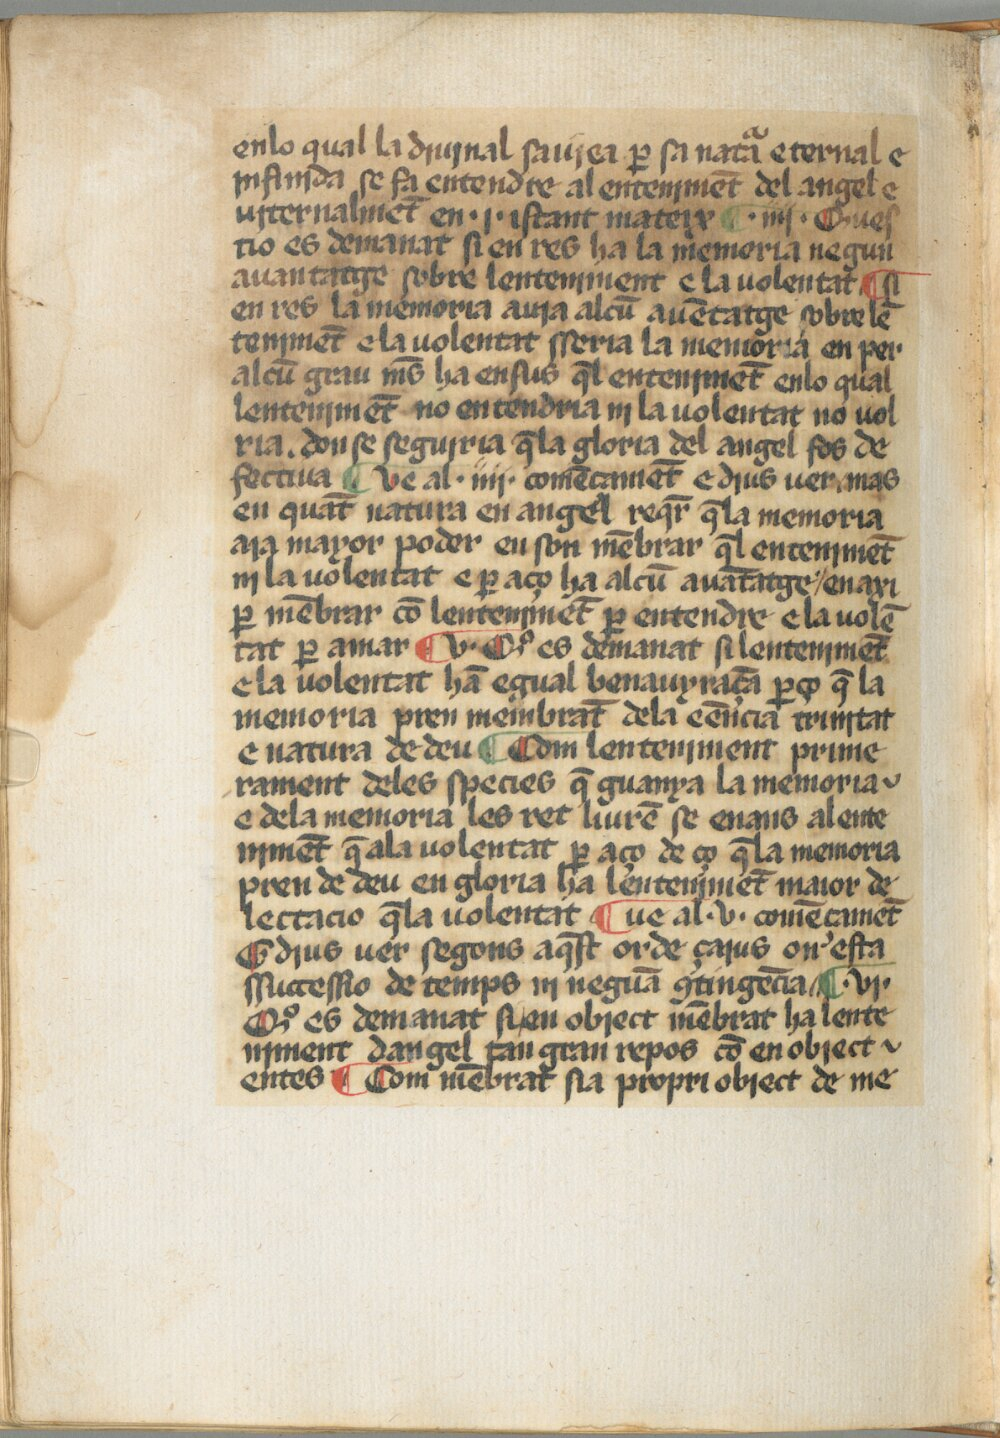 enlo qual la diuinal sauiea ꝑ sa natãa eternal e
infinida se fa entendre al entenimẽt del angel e
uiternalmẽt en · i · istant mateix ¶ · iiij · Ques
tio es demanat si en res ha la memoria negun
auantatge sobre lenteniment e la uolentat ¶ si
en res la memoria auia alcũ auẽtatge sobre lẽ
tenimẽt e la uolentat sseria la memoria en per
alcũ grau mẽs ha ensus q̃l entenimẽt enlo qual
lentenimẽt no entendria ni la uolentat no uol
ria . don se seguiria q̃la gloria del angel fos de
fectiua ¶ Ve al · iiij · comẽcamẽt e dius uer mas
en quãt natura en angel reqr̃ q̃la memoria
aia mayor poder en son mẽbrar q̃l entenimẽt
ni la uolentat e ꝑ aço ha alcũ auãtatge / enaxi
ꝑ mẽbrar cõ lentenimẽt ꝑ entendre e la uolẽ
tat ꝑ amar ¶ v · Qº es demanat si lentenimẽt
e la uolentat hã egual benauyrãca ꝑço q̃ la
memoria pren membrãt dela eẽncia trinitat
e natura de deu ¶ Com lenteniment prime
rament deles species q̃ guanya la memoria
e dela memoria les ret liurẽ se enans al ente
nimẽt q̃ ala uolentat ꝑ aço de ço q̃la memoria
pren de deu en gloria ha lentenimẽt maior de
lectacio q̃la uolentat ¶ ue al · v · comẽcamẽt
E dius uer segons aq̃st orde çaius on esta
ssuccessio de temps ni neguã ꝯtingẽcia ¶ · vi ·
Qº es demanat si en obiect mẽbrat ha lente
niment dangel tan gran repos cõ en obiect
entes ¶ Com mẽbrat sia propri obiect de me